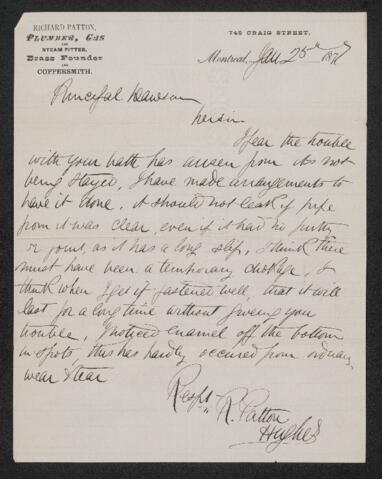 RICHARD PATTON,
PLUMBER, GAS
AND
STEAM FITTER,
Brass Founder
AND
COPPERSMITH.
745 CRAIG STREET,
Montreal, Jan 25th 187
Principal Dawson
I fear the trouble
with your bath has arisen from its not
being stayed, I have made arrangements to
have it done, it should not leak if pipe
from it was clear, even if it had no putty
or joint, as it has a long slip, I think there
must have been a temporary chokage, &
think when I get it fastened well, that it will
last for a long time without giving you
trouble, I noticed enamel off the bottom
in spots, this has hardly occured from ordinary
wear & tear
Respt
R. Patton
Hughes